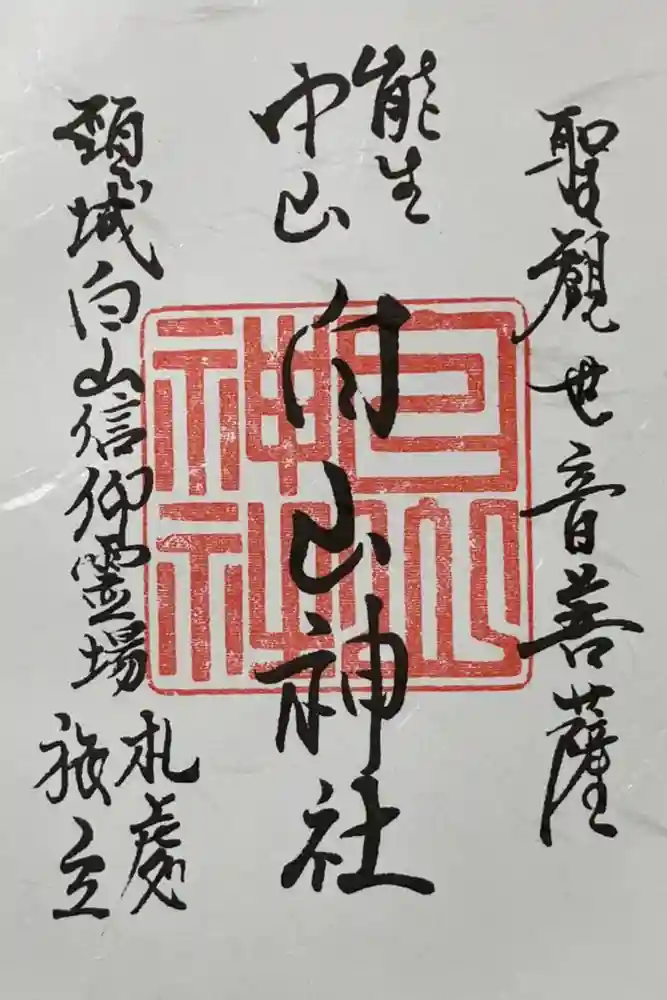 聖觀世音菩薩
能生
中山
白山神社
白山
神社
頸城白山信仰霊場
札處
旅立